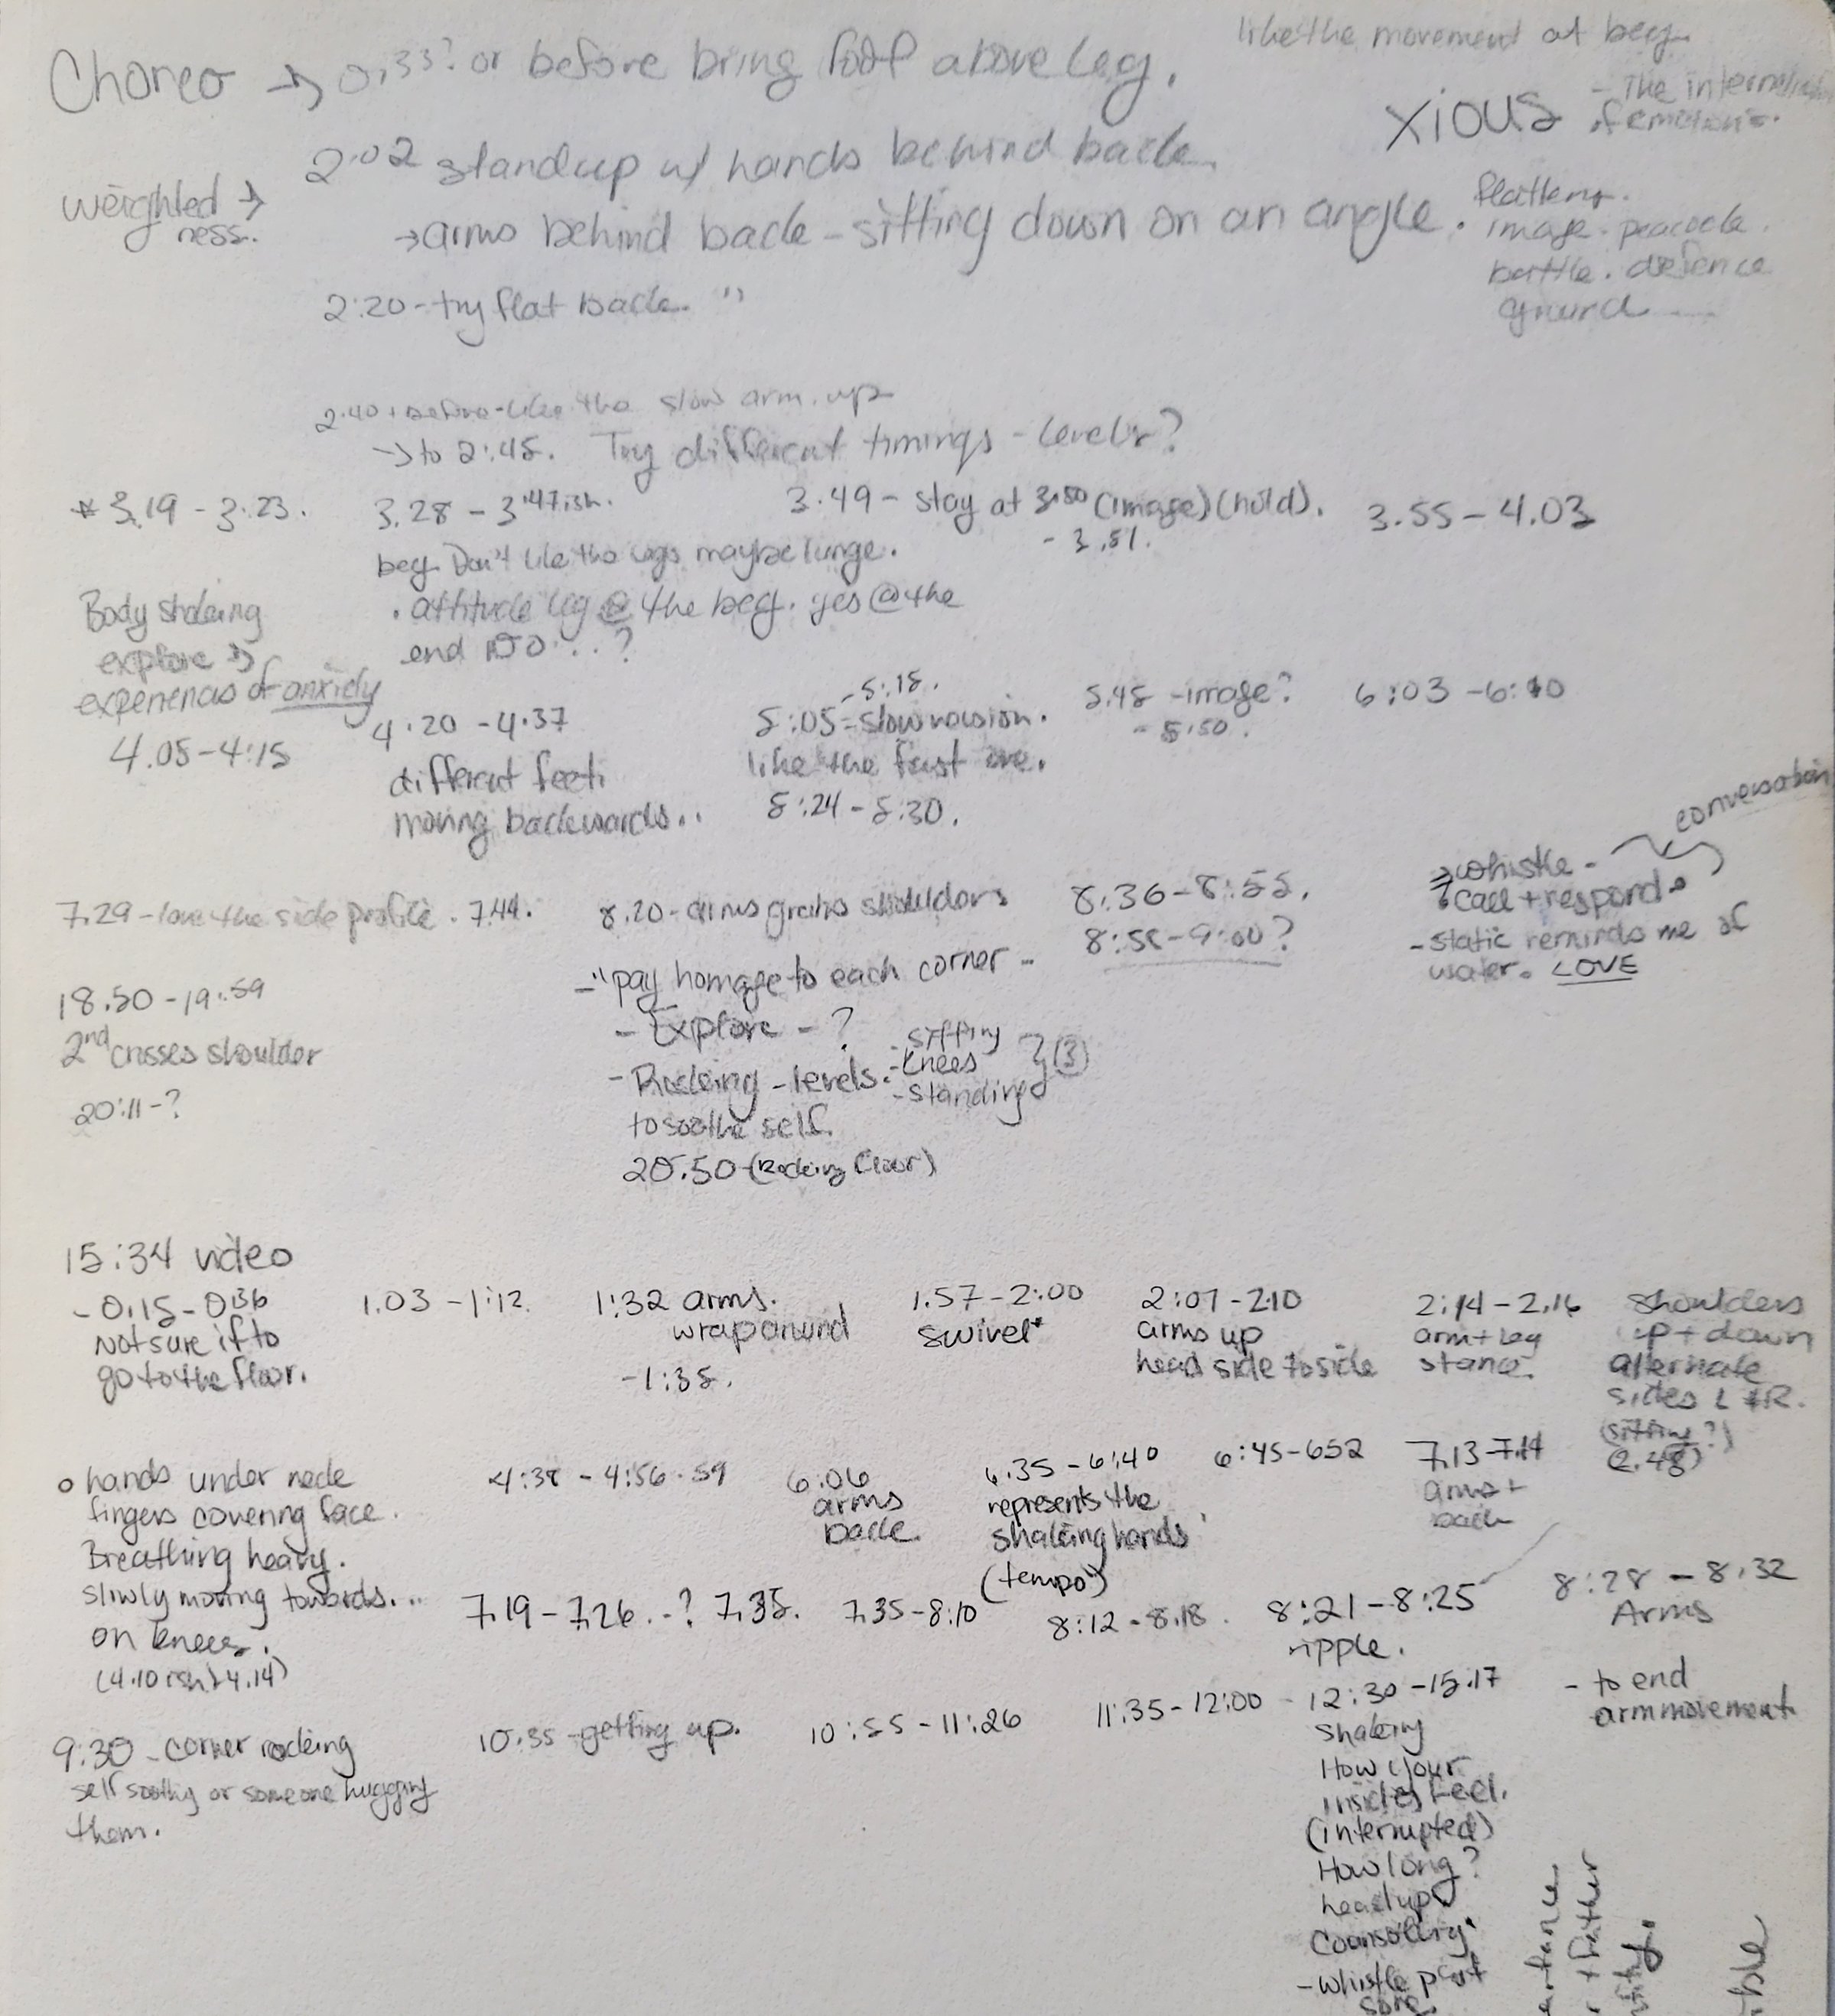 like the movement at beg.
Choreo → 0:33? or before bring foot above leg.
xious
- The
of emotions.
2:02 standup w/ hands behind back.
weighted →
ness.
→ arms behind back - sitting down on an angle.
image. peacock.
battle. defence
guard
2:20 - try flat back. "
2:40 + before - like the slow arm. up
→ to 2:45. Try different timings - levels?
* 3.19 - 3.23.
3.28 - 3:47ish.
3.49 - stay at 3:50 (image) (hold).
- 3.51.
3.55 - 4.03
beg. Don't like the legs maybe lunge.
. attitude leg @ the beg. yes @ the
end NO...?
Body shaking
explore
experiences of anxiety
4.05 - 4:15
4.20 - 4.37
different feet
moving backwards..
- 5:15.
5:05 = slow version.
like the fast one.
5:24 - 5:30.
5.45 - image?
- 5:50.
6:03 - 6:10
conversation
7.29 - love the side profile. 7.44.
8.20 - arms grabs shoulders
8.36 - 8:55.
8:55 - 9:00?
→ whistle -
call + respond
- static reminds me of
water. LOVE
- "pay homage to each corner -
- Explore - ?
- Rocking - levels:
- sitting
- knees
- standing
} (3)
to soothe self.
20.50 - (Rocking floor)
18.50 - 19:59
2nd crosses shoulder
20:11 - ?
15:34 video
- 0:15 - 0:36
Not sure if to
go to the floor.
1.03 - 1:12.
1:32 arms.
wrap around
- 1:35.
1.57 - 2:00
swivel
2:07 - 2:10
arms up
head side to side
2:14 - 2.16
arm + leg
stance.
shoulders
up + down
alternate
sides L + R.
(sitting?)
(2.48)
o hands under neck
fingers covering face.
Breathing heavy.
slowly moving towards...
on knees.
(4.10 ish) 4.14)
4:38 - 4:56 - 59
6:06
arms
back.
6.35 - 6:40
represents the
shaking hands
(tempo)
6:45 - 652
7.13 - 7.14
arms +
back
7.19 - 7.26..? 7.35.
7.35 - 8:10
8:12 - 8.18.
8:21 - 8:25
ripple.
8:28 - 8:32
Arms
9:30 - corner rocking
self soothing or someone hugging
them.
10:35 - getting up.
10:55 - 11:26
11:35 - 12:00
- 12:30 - 15.17
shaking
How your
insides feel.
(interrupted)
How long?
head up
- whistle part
- to end
arm movement